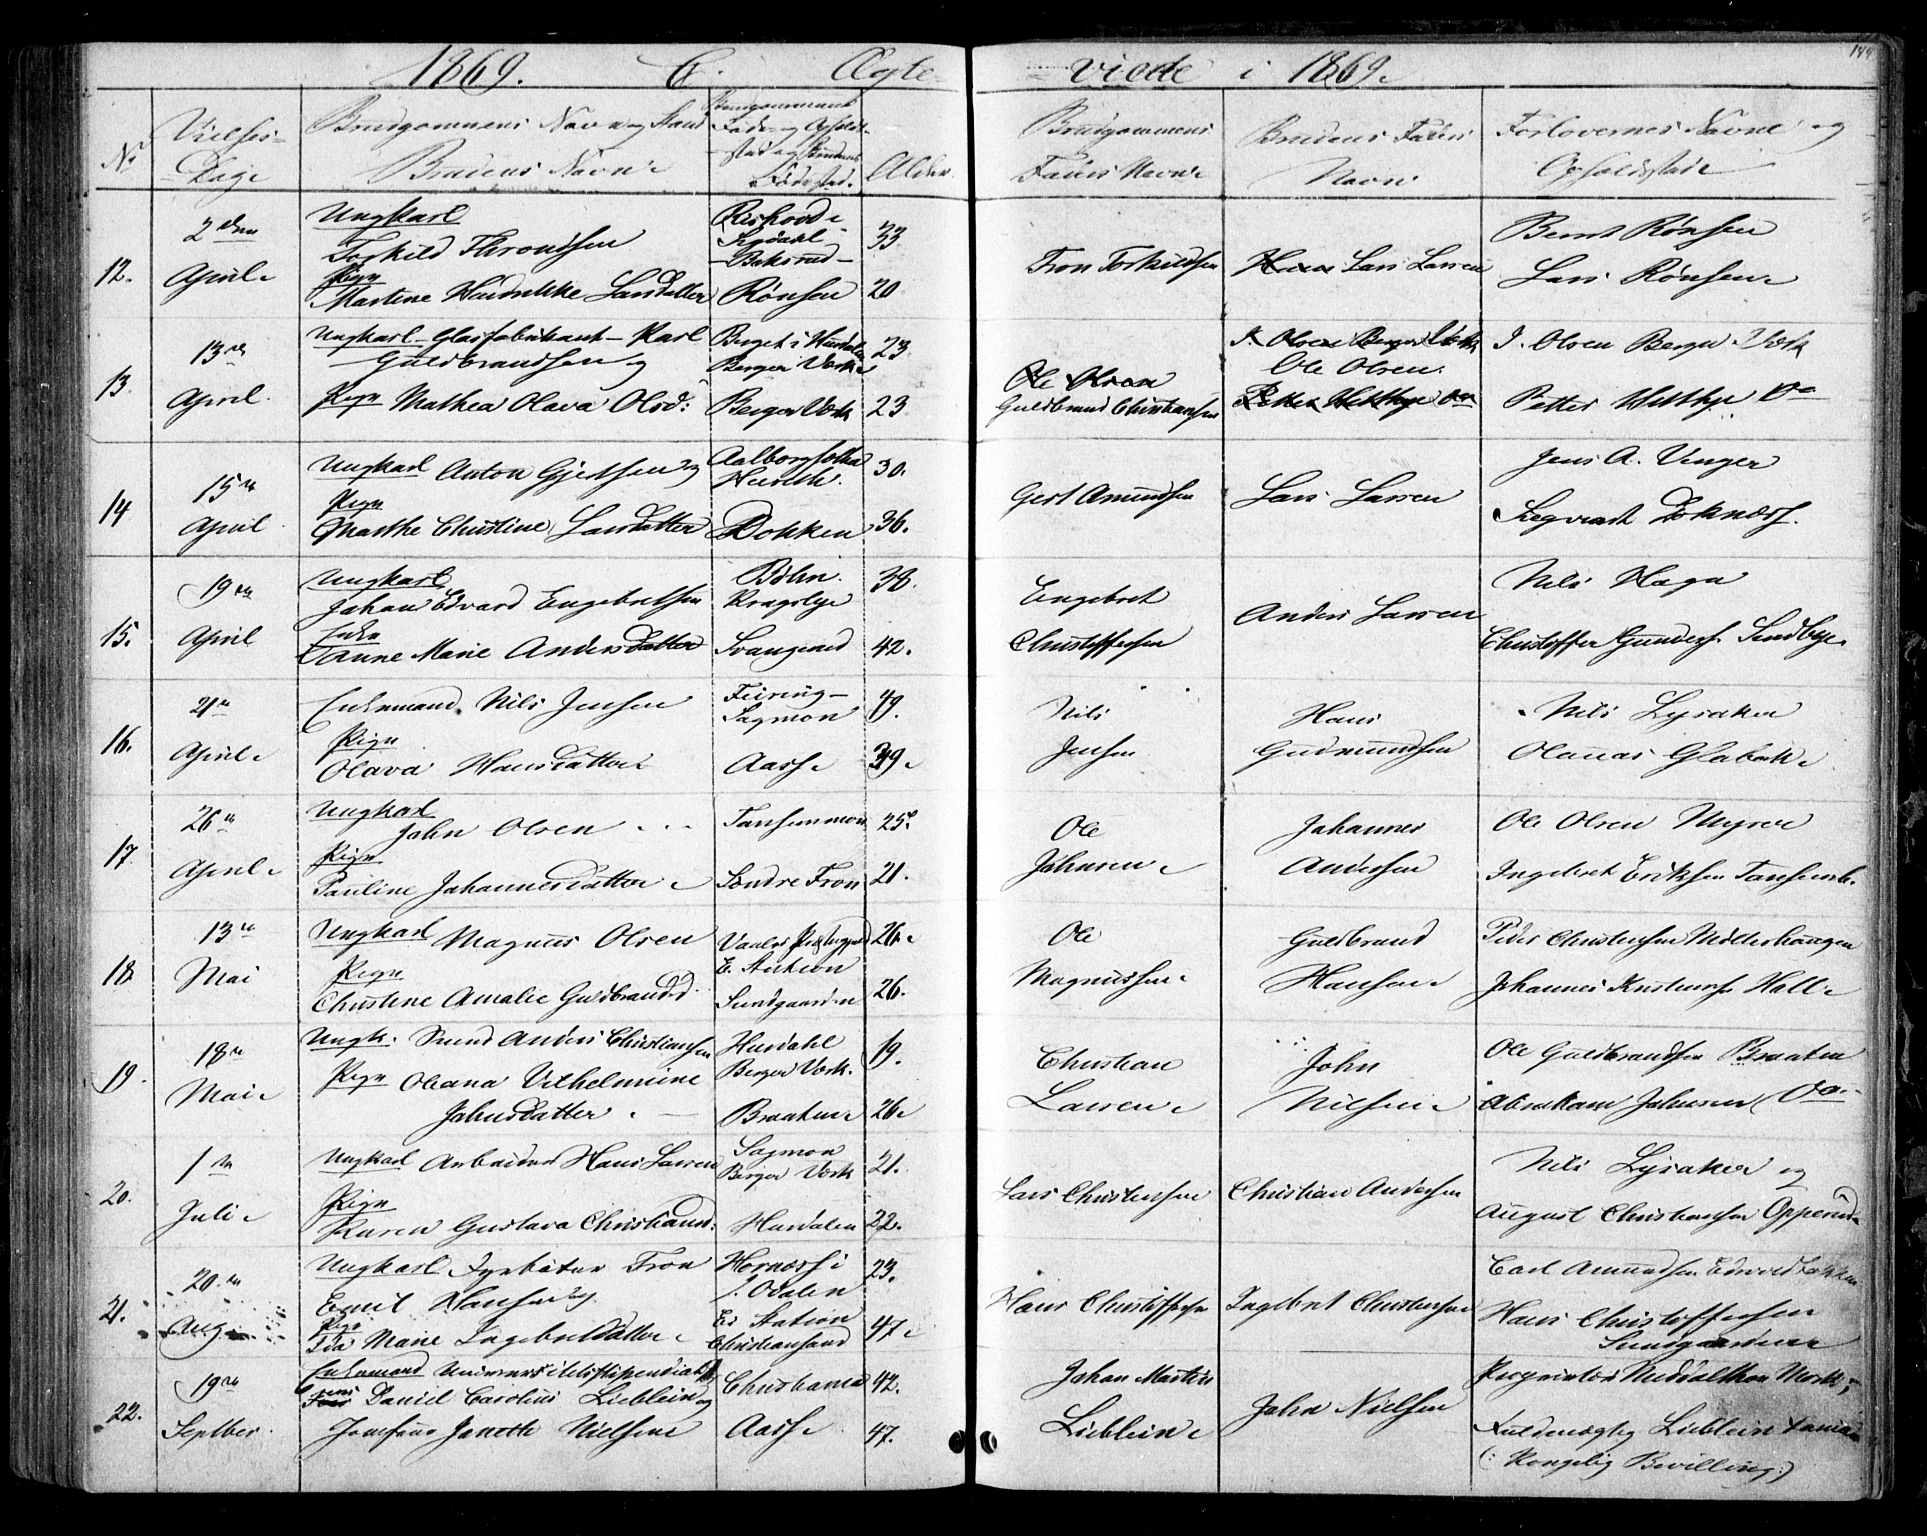 1869. C. Ægte-
viede i 1869.
144
No
Vielses-
Dag
Brudgommens Navn og Stand
Brudens Navn
Brudgommens
Føde- og Opholds-
sted og Brudens
Fødested.
Alder.
Brudgommens
Faders Navn
Brudens Faders
Navn
Forlovernes Navne og
Opholdssted
12.
2den
April
Ungkarl
Torkild Throndsen
Pige
Martine Hendrikke Larsdatter
Bakerud
Rønsen
33
20
Tron Torkildsen
Lars Larsen
Bernt Rønsen
Lars Rønsen
13.
13de
April.
Ungkarl Glasfabrikant Karl
Guldbrandsen og
Pige Mathea Olava Olsd:
Berget i Hurdalen
Berger Værk
Berger Værk
23
23
Ole Olsen
Guldbrand Christiansen
J. Olsen Berger Værk
Ole Olsen.
J. Olsen Berger Værk
Petter Do
14
15de
April
Ungkarl Anton Gjertsen og
Pige
Marthe Christine Larsdatter
Dokken
30.
36.
Gert Amundsen
Lars Larsen
Jens A. Unger
15.
19de
April
Ungkarl
Johan Edvard Engebretsen
Enke
Anne Marie Andersdatter
Bøhn.
Kragslye
Svangerud
38.
42.
Engebret
Christoffersen
Anders Larsen
Nils Haga
Christoffer Gunders. Sundbye.
16.
21de
April
Enkemand Nils Jensen
Pige
Olava Hansdatter
Feiring
Sagmon
Aas
49.
39
Nils
Jensen
Hans
Gudmundsen
Nils Lysaker
17.
26de
April
Ungkarl
John Olsen
Pige
Pauline Johannesdatter
Tansenmoen
Søndre Fron
25.
21.
Ole
Johnsen
Johannes
Andersen
Ole Olsen Myren
Ingebret Eriksen
18
13de
Mai
Ungkarl Magnus Olsen
Pige
Christine Amalie Guldbrandsd.
E. Station
Sundgaarden
26.
26.
Ole
Magnussen
Guldbrand
Hansen
Peder Christensen Melterhaugen
Johannes Hall
19.
18de
Mai
Ungk. Svend Anders Christiansen
Pige Oleana Vilhelmine
Johnsdatter
Hurdahl
Berger Værk.
Braaten
19.
26
Christian
Larsen
John
Nielsen
Ole Guldbrandsen Braaten
Abraham Johnsen Do.
20.
1ste
Juli
Ungkarl Arbeider Hans Larsen
Pige
Karen Gustava Christiansd:
Sagmon
Berger Værk
Hurdalen
21.
22.
Lars Christensen
Christian Andersen
Nils Lysaker og
August Christiansen Opperud
21.
20de
Aug
Ungkarl Fyrbøter Tron
Emil Hansen og
Pige
Ida Marie Ingebretsdatter
Hornæss i
S. Odalen
Ei Station
Christiansand
23.
47
Hans Christoffersen
Ingebret Christensen
Carl Amundsen
Hans Christoffersen
Sundgaarden
22.
19de
Septber
Enkemand Universitetsstipendiat
Daniel Carolius Lieblein og
Josefine Janette Nielsen
Christiania
Aas
42.
47.
Johan Martin
Lieblein
John Nielsen
Proprietær
Fuldmægtig Lieblein
(: Kongelig Bevilling:)